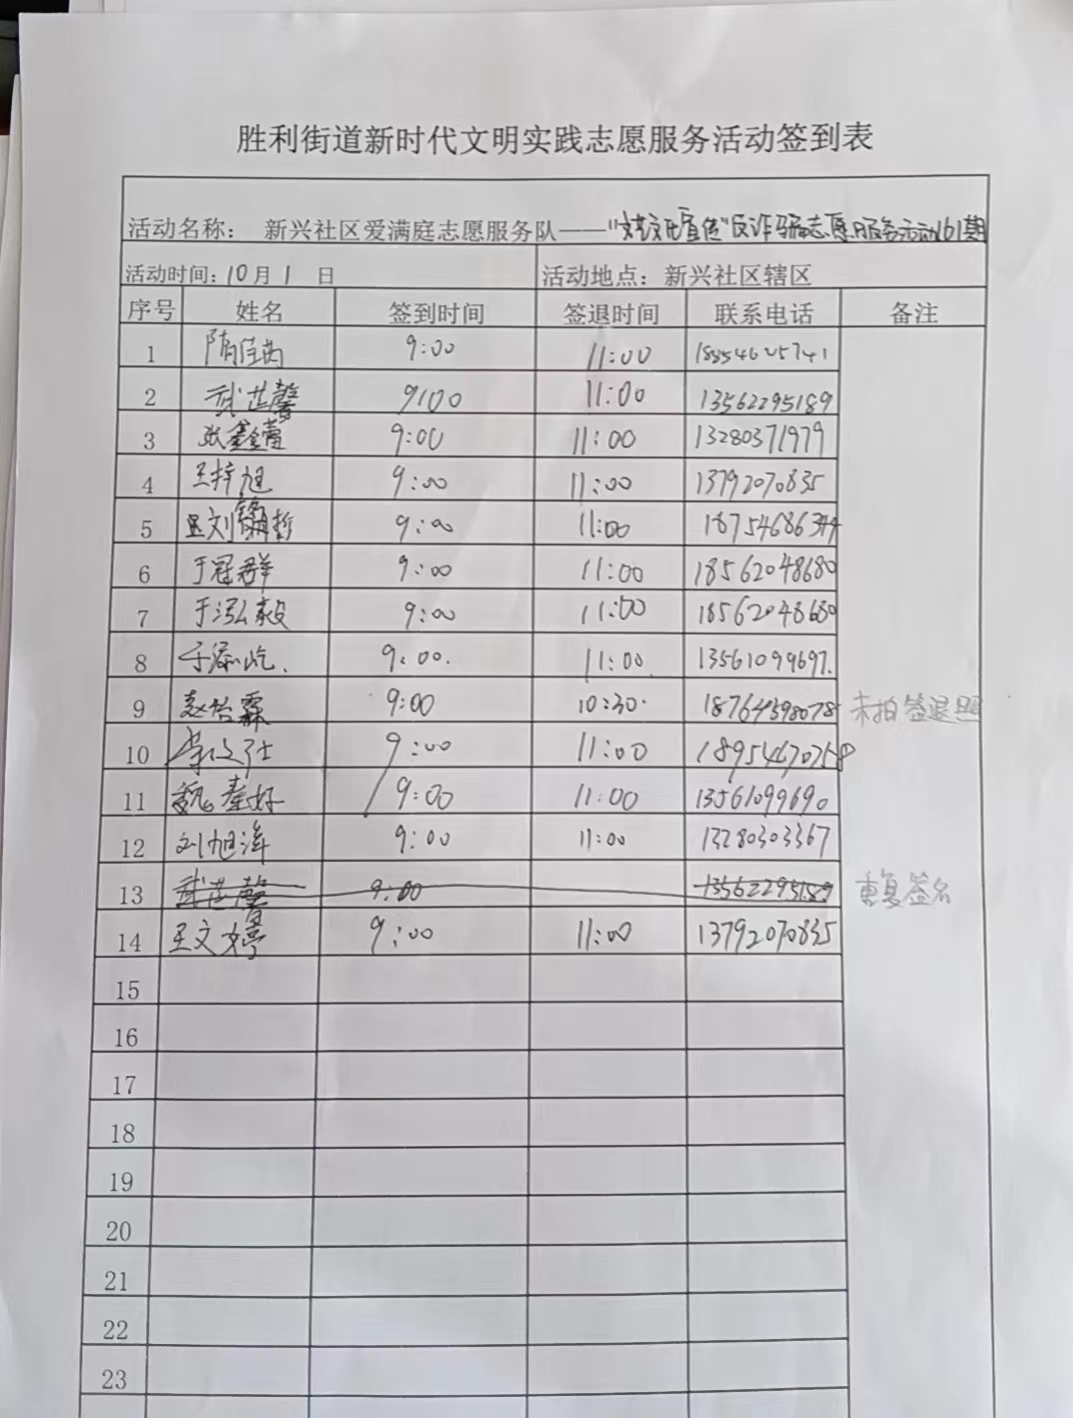 胜利街道新时代文明实践志愿服务活动签到表
活动名称： 新兴社区爱满庭志愿服务队——“文艺文化宣传”反诈骗志愿服务活动161期
活动时间：10月1日 活动地点：新兴社区辖区
序号 姓名 签到时间 签退时间 联系电话 备注
1 隋 9:00 11:00
2 武芷馨 9:00 11:00 13562295189
3 张鑫蕾 9:00 11:00 13280371979
4 王梓旭 9:00 11:00 13792070835
5 刘锦哲 9:00 11:00
6 于冠群 9:00 11:00 18562048680
7 于泓毅 9:00 11:00 18562048680
8 于添屹. 9:00. 11:00 13561099697.
9 赵怡霖 9:00 10:30. 18764398078 未拍签退照
10 9:00 11:00 18954670758
11 魏睿好 9:00 11:00 13561099690
12 刘旭洋 9:00 11:00 13280303367
13 武芷馨 9:00 13562295189 重复签名
14 王文婷 9:00 11:00 13792070835
15
16
17
18
19
20
21
22
23